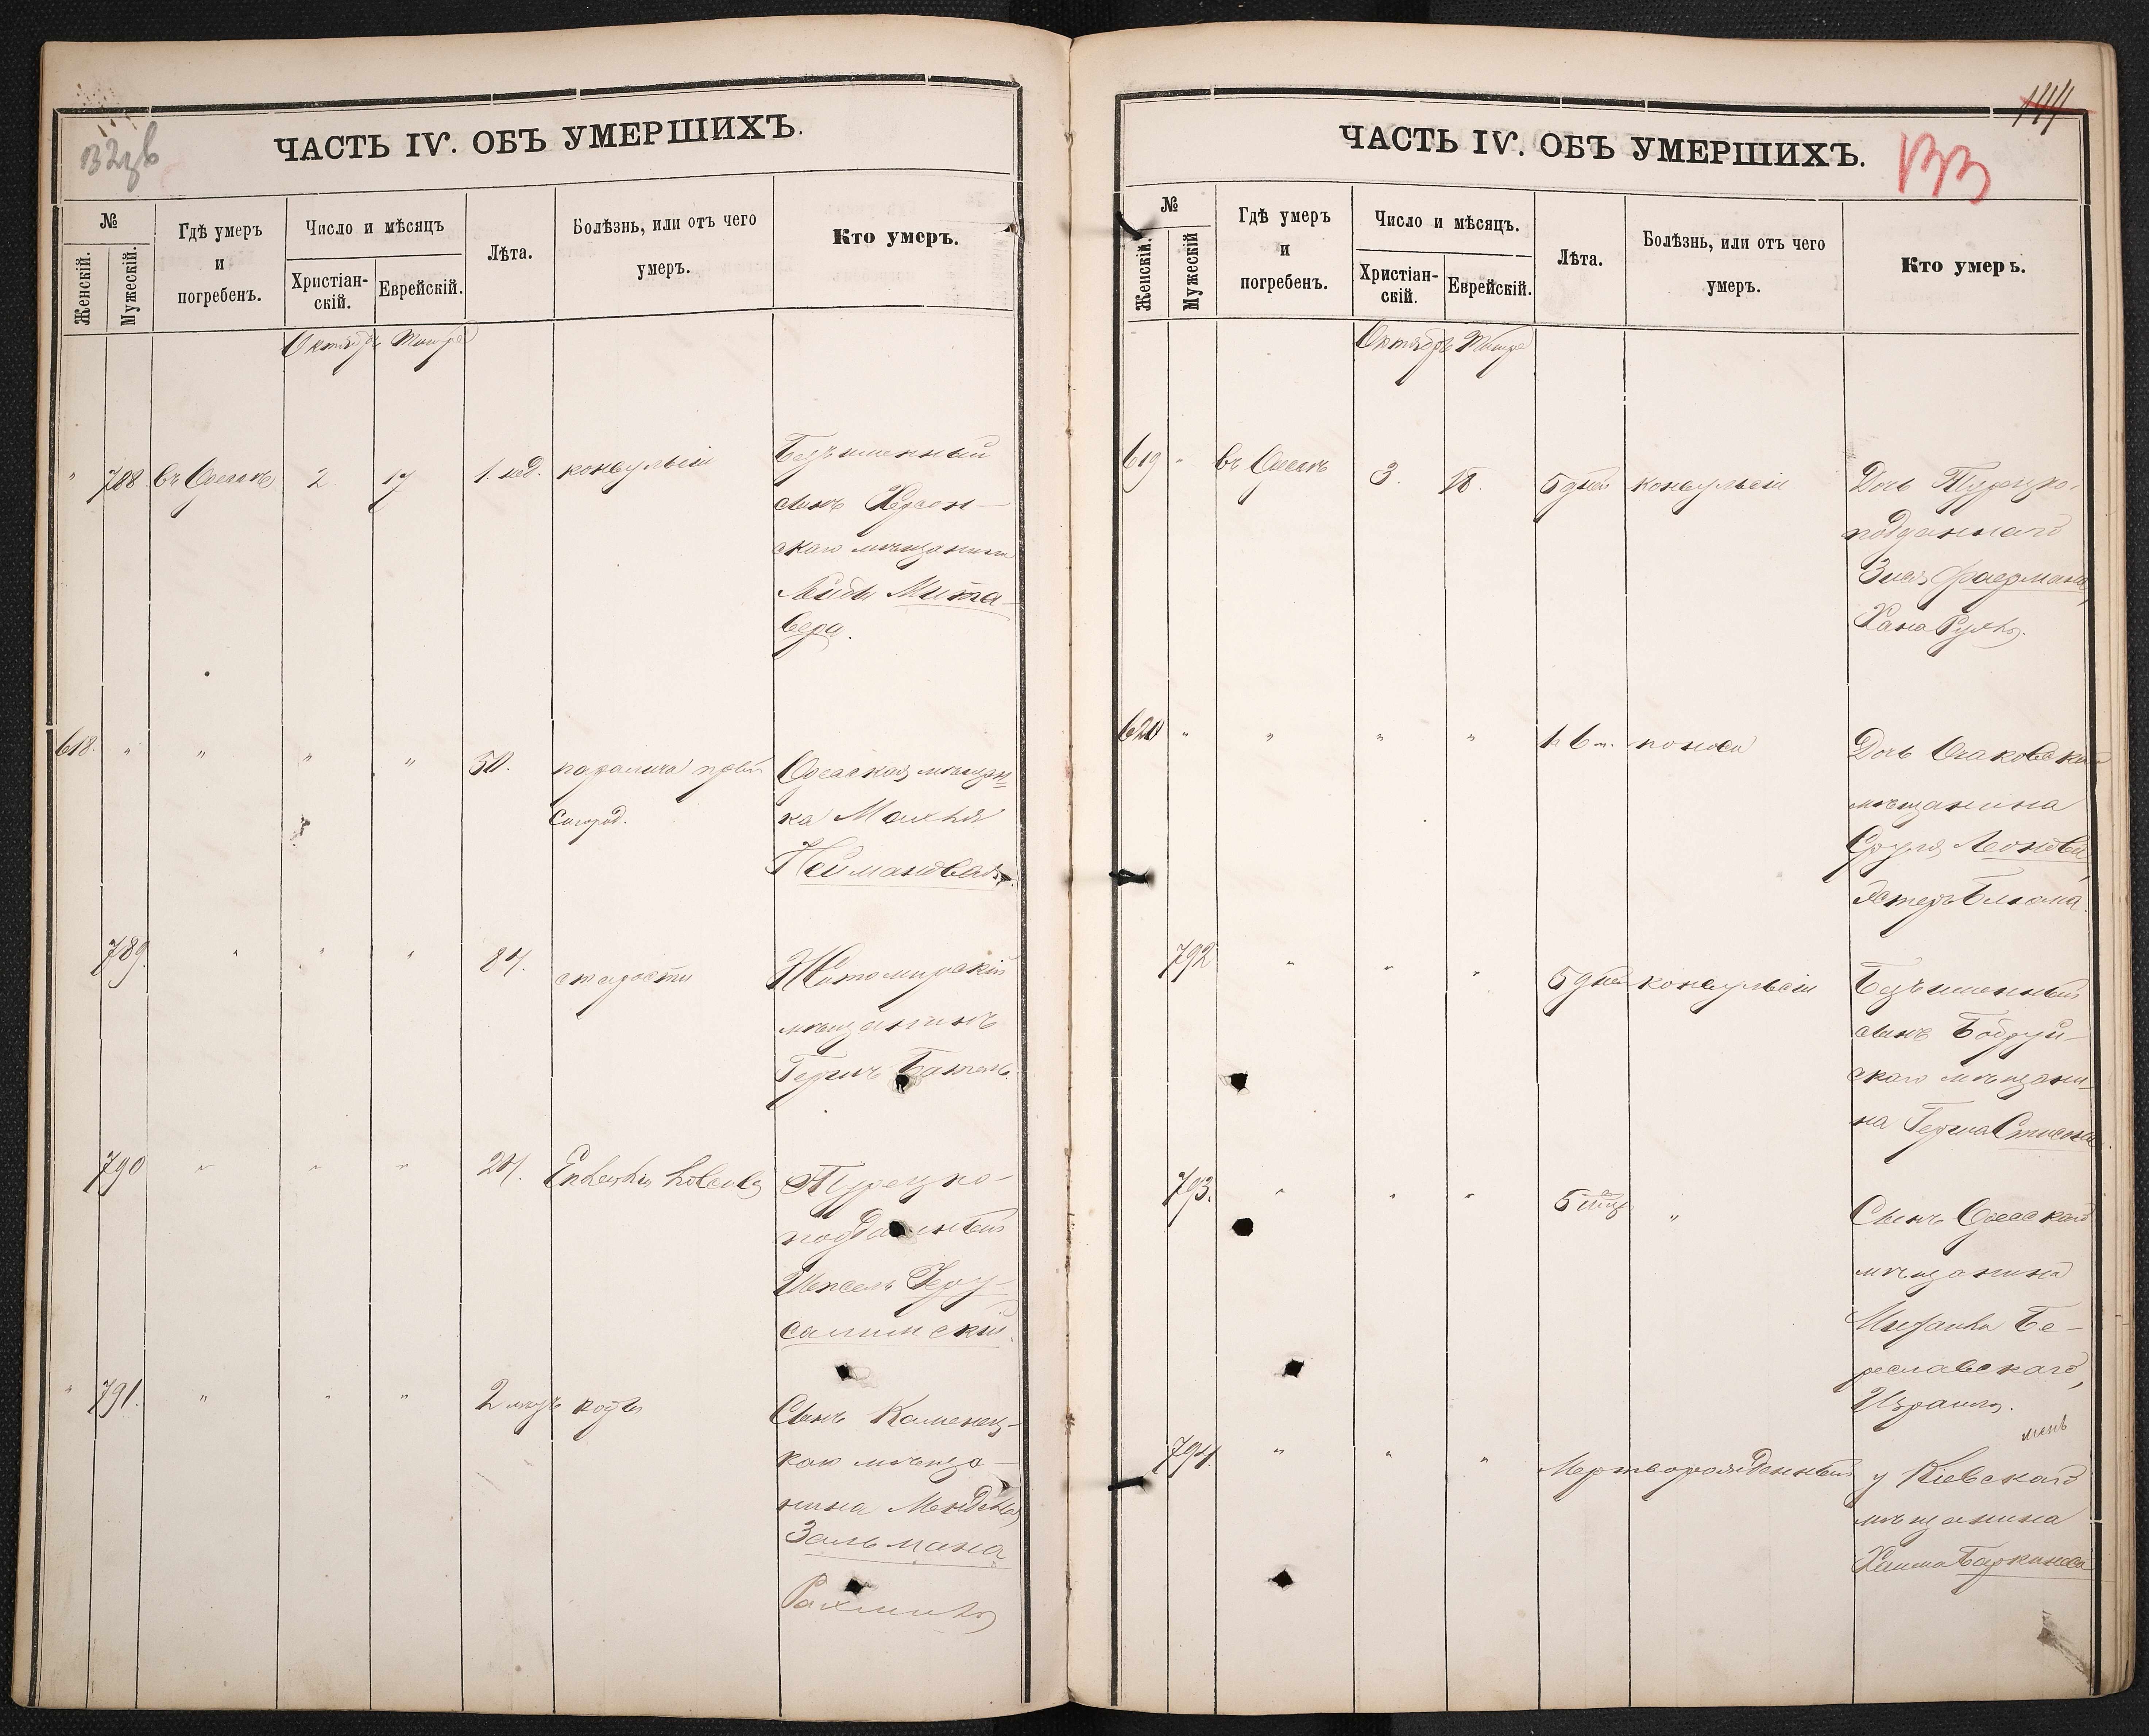 132 об
ЧАСТЬ IV. ОБЪ УМЕРШИХЪ.
№
Женскій.
Мужескій.
Гдѣ умеръ
и
погребенъ.
Число и мѣсяцъ
Христіан-
скій.
Еврейскій.
Лѣта.
Болѣзнь, или отъ чего
умеръ.
Кто умеръ.
Октябрь Тишре
" 788 въ Одессѣ 2. 17 1. нед. конвульсіи Безъименный
сынъ Херсон-
скаго мѣщанина
Лейбы Мита-
вера.
618. " " " " 50. паралича Одесская мѣщан-
ка Малка
Неймановская.
789. " " " 84. старости Житомирскій
мѣщанинъ
Гершъ
790 " " " 24. Турецко-
подданный
Шепсель Іеру-
салимскій.
" 791. " " " 2 мѣс. Сынъ Каменец-
каго мѣща-
нина Менделя
Зальмана
Рахмиль
144
133
ЧАСТЬ IV. ОБЪ УМЕРШИХЪ.
№
Женскій.
Мужескій
Гдѣ умеръ
и
погребенъ.
Число и мѣсяцъ.
Христіан-
скій.
Еврейскій.
Лѣта.
Болѣзнь, или отъ чего
умеръ.
Кто умеръ.
Октябрь Тишре
619 " въ Одессѣ 3. 18. 5 дней конвульсіи Дочь Турецко-
подданнаго
Зуся Фаермана,
Хана Рухля.
620 " " " " 1. 6 м. поноса Дочь Очаковскаго
мѣщанина
Сруля
Эстеръ Блюма.
792 " " " 5 дней конвульсіи Безъименный
сынъ Бобруй-
скаго мѣщани-
на Герша
793. " " " 5 мѣс. " Сынъ Одесскаго
мѣщанина
Бе-
реславскаго,
Израиль.
794. " " " Мертворожденный у Кіевскаго
мѣщанина
Хаима Баркинова